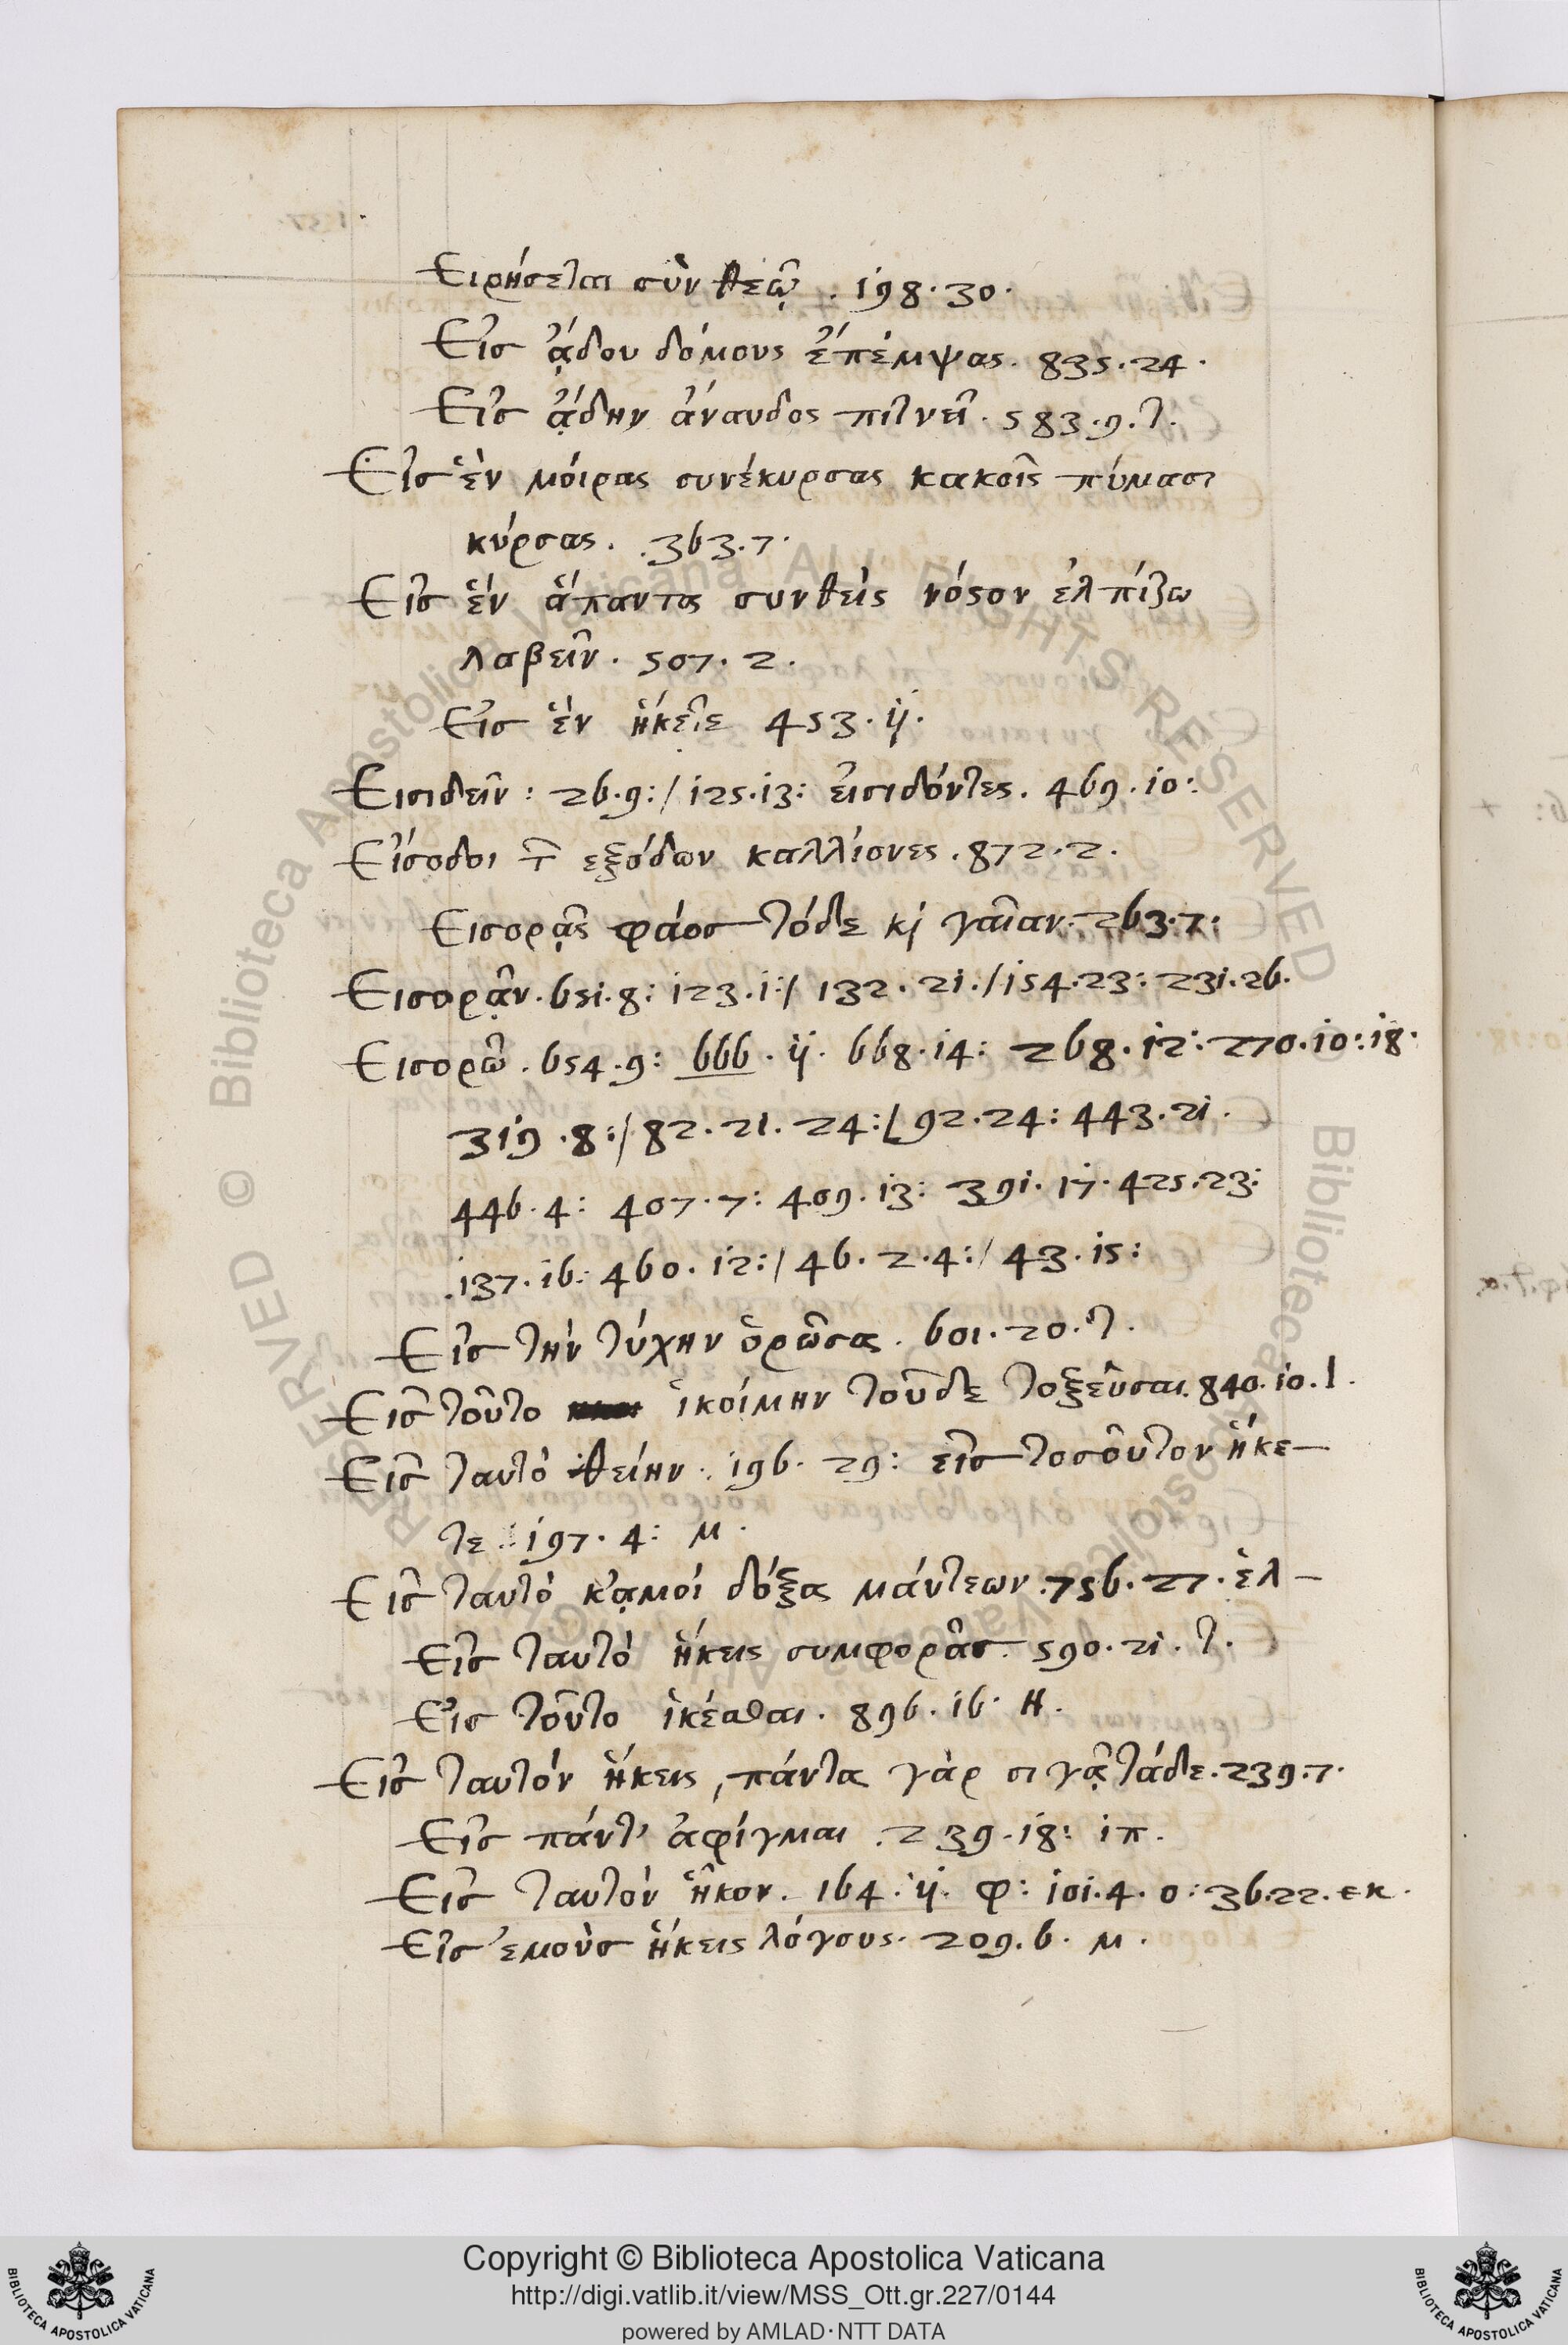 Ειρήσεται σὺν θεῶ . 198.30.
Εἰσ ᾅδου δόμους ἔπέμψας. 835.24.
Εἰσ ᾅδην ἄναυδος πιτνεῖ. 583.9.τ.
Εἰσ ἓν μοίρας συνέκυρσας κακοῖς πύμασι
κύρσας. .363.7.
Εἰσ ἓν ἅπαντας συνθεὶς νόσον ἐλπίζω
λαβεῖν. 507.2.
Εἰσ ἓν ἥκετε 453.ij.
Εισιδεῖν: 26.9:/ 125.13: εἰσιδόντες. 469.10:
Εἴσοδοι τ̃ εξόδων καλλίονες. 872.2.
Εισορᾷς φάοσ τόδε κὶ γαῖαν. 263.7:
Εισορᾷν. 651.8: 123.1:/ 132. 21./ 154.23: 231.26.
Εισορῶ. 654.9: 666.ij. 668.14: 268.12: 270.10:18.
319.8:/ 82.21.24:/ 92.24: 443.21.
446.4: 407.7: 409.13: 391.17. 425.23:
.137.16: 460.12:/ 46.2.4:/ 43.15:
Εἰσ τὴν τύχην ὁρῶσας. 601.20.τ.
Εἰσ τοῦτο ἱκοίμην τοῦδε τοξεῦσαι. 840.10.l.
Εἰσ ταυτὸ θείην. 196. 29: εἰσ τοσοῦτον ἥκε-
τε. 197.4: μ.
Εἰσ ταυτὸ κᾀμοὶ δόξας μάντεων. 756.27. ἑλ-
Εἰσ ταυτὸ ἥκεις συμφορᾶσ. 590.21.τ.
Εἰσ τοῦτο ἱκέσθαι. 896.16. Η.
Εἰσ ταυτὸν ἥκεις, πάντα γὰρ σιγᾷ τάδε. 239.7.
Εἰσ πάντ' ἀφίγμαι .239.18: ἱπ.
Εἰσ ταυτὸν ἧκον. 164.ij. φ: 101.4.ο: 36.22. εκ.
Εἰσ ἐμοὺσ ἥκεις λόγους. 209.6. μ.
Copyright © Biblioteca Apostolica Vaticana
http://digi.vatlib.it/view/MSS_Ott.gr.227/0144
powered by AMLAD·NTT DATA